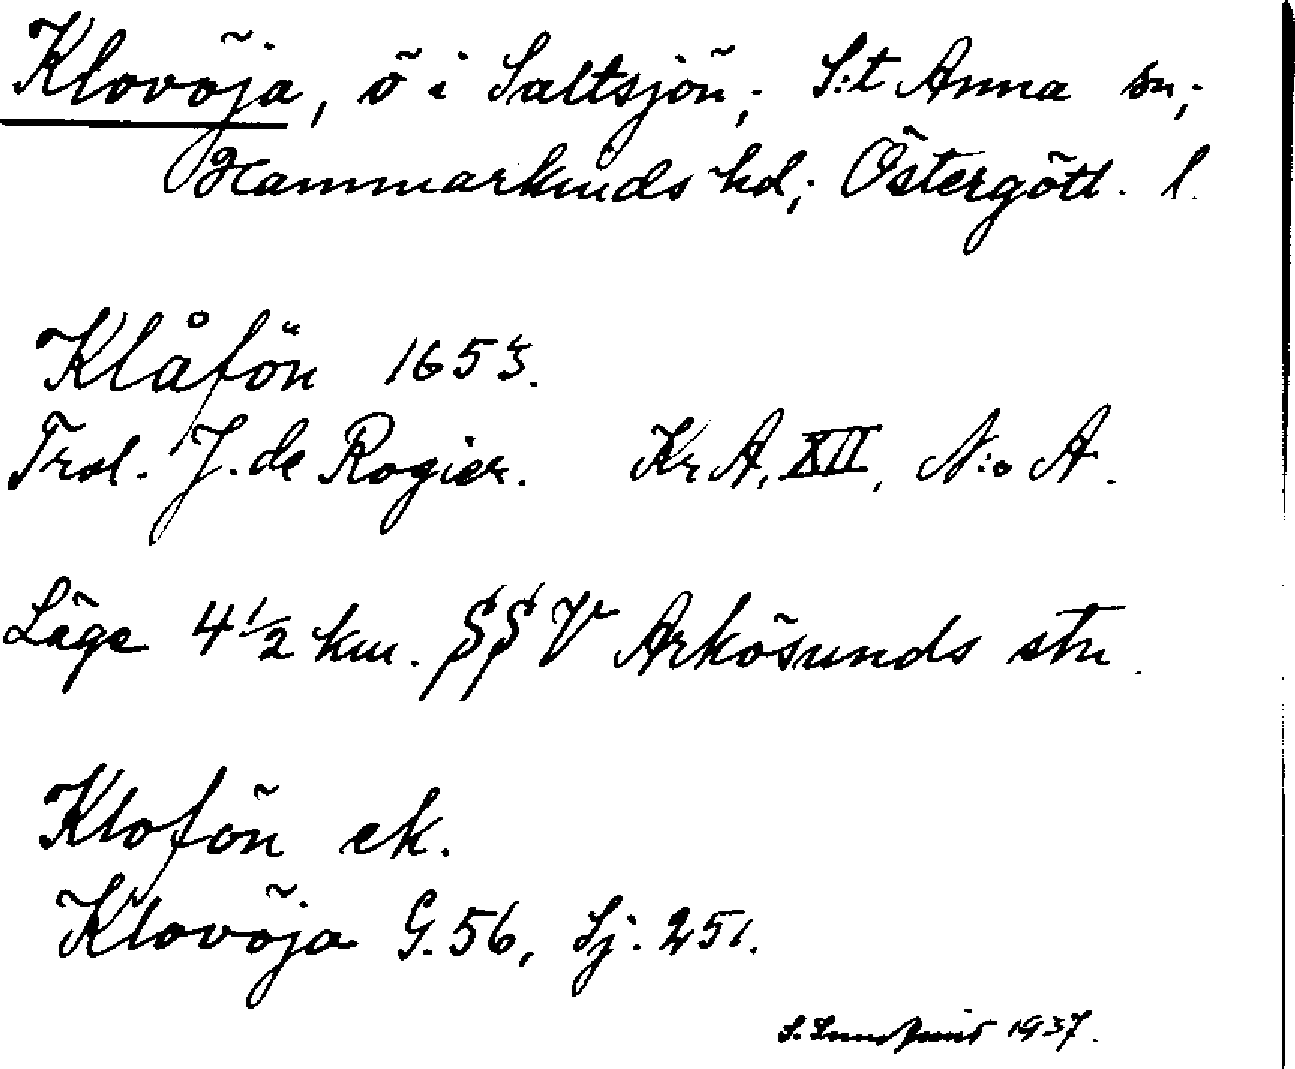 Klovöja, ö i Saltsjön; S:t Anna sn;
Hammarkinds hd; Östergötl. l.
Klåfön 1653.
Trol. J. de Rogier. Kr A, XII, N:o A.
Läge 4 1/2 km. SSV Arkösunds stn.
Klofön ek.
Klovöja G. 56, Sj. 251.
S. Lundqvist 1937.